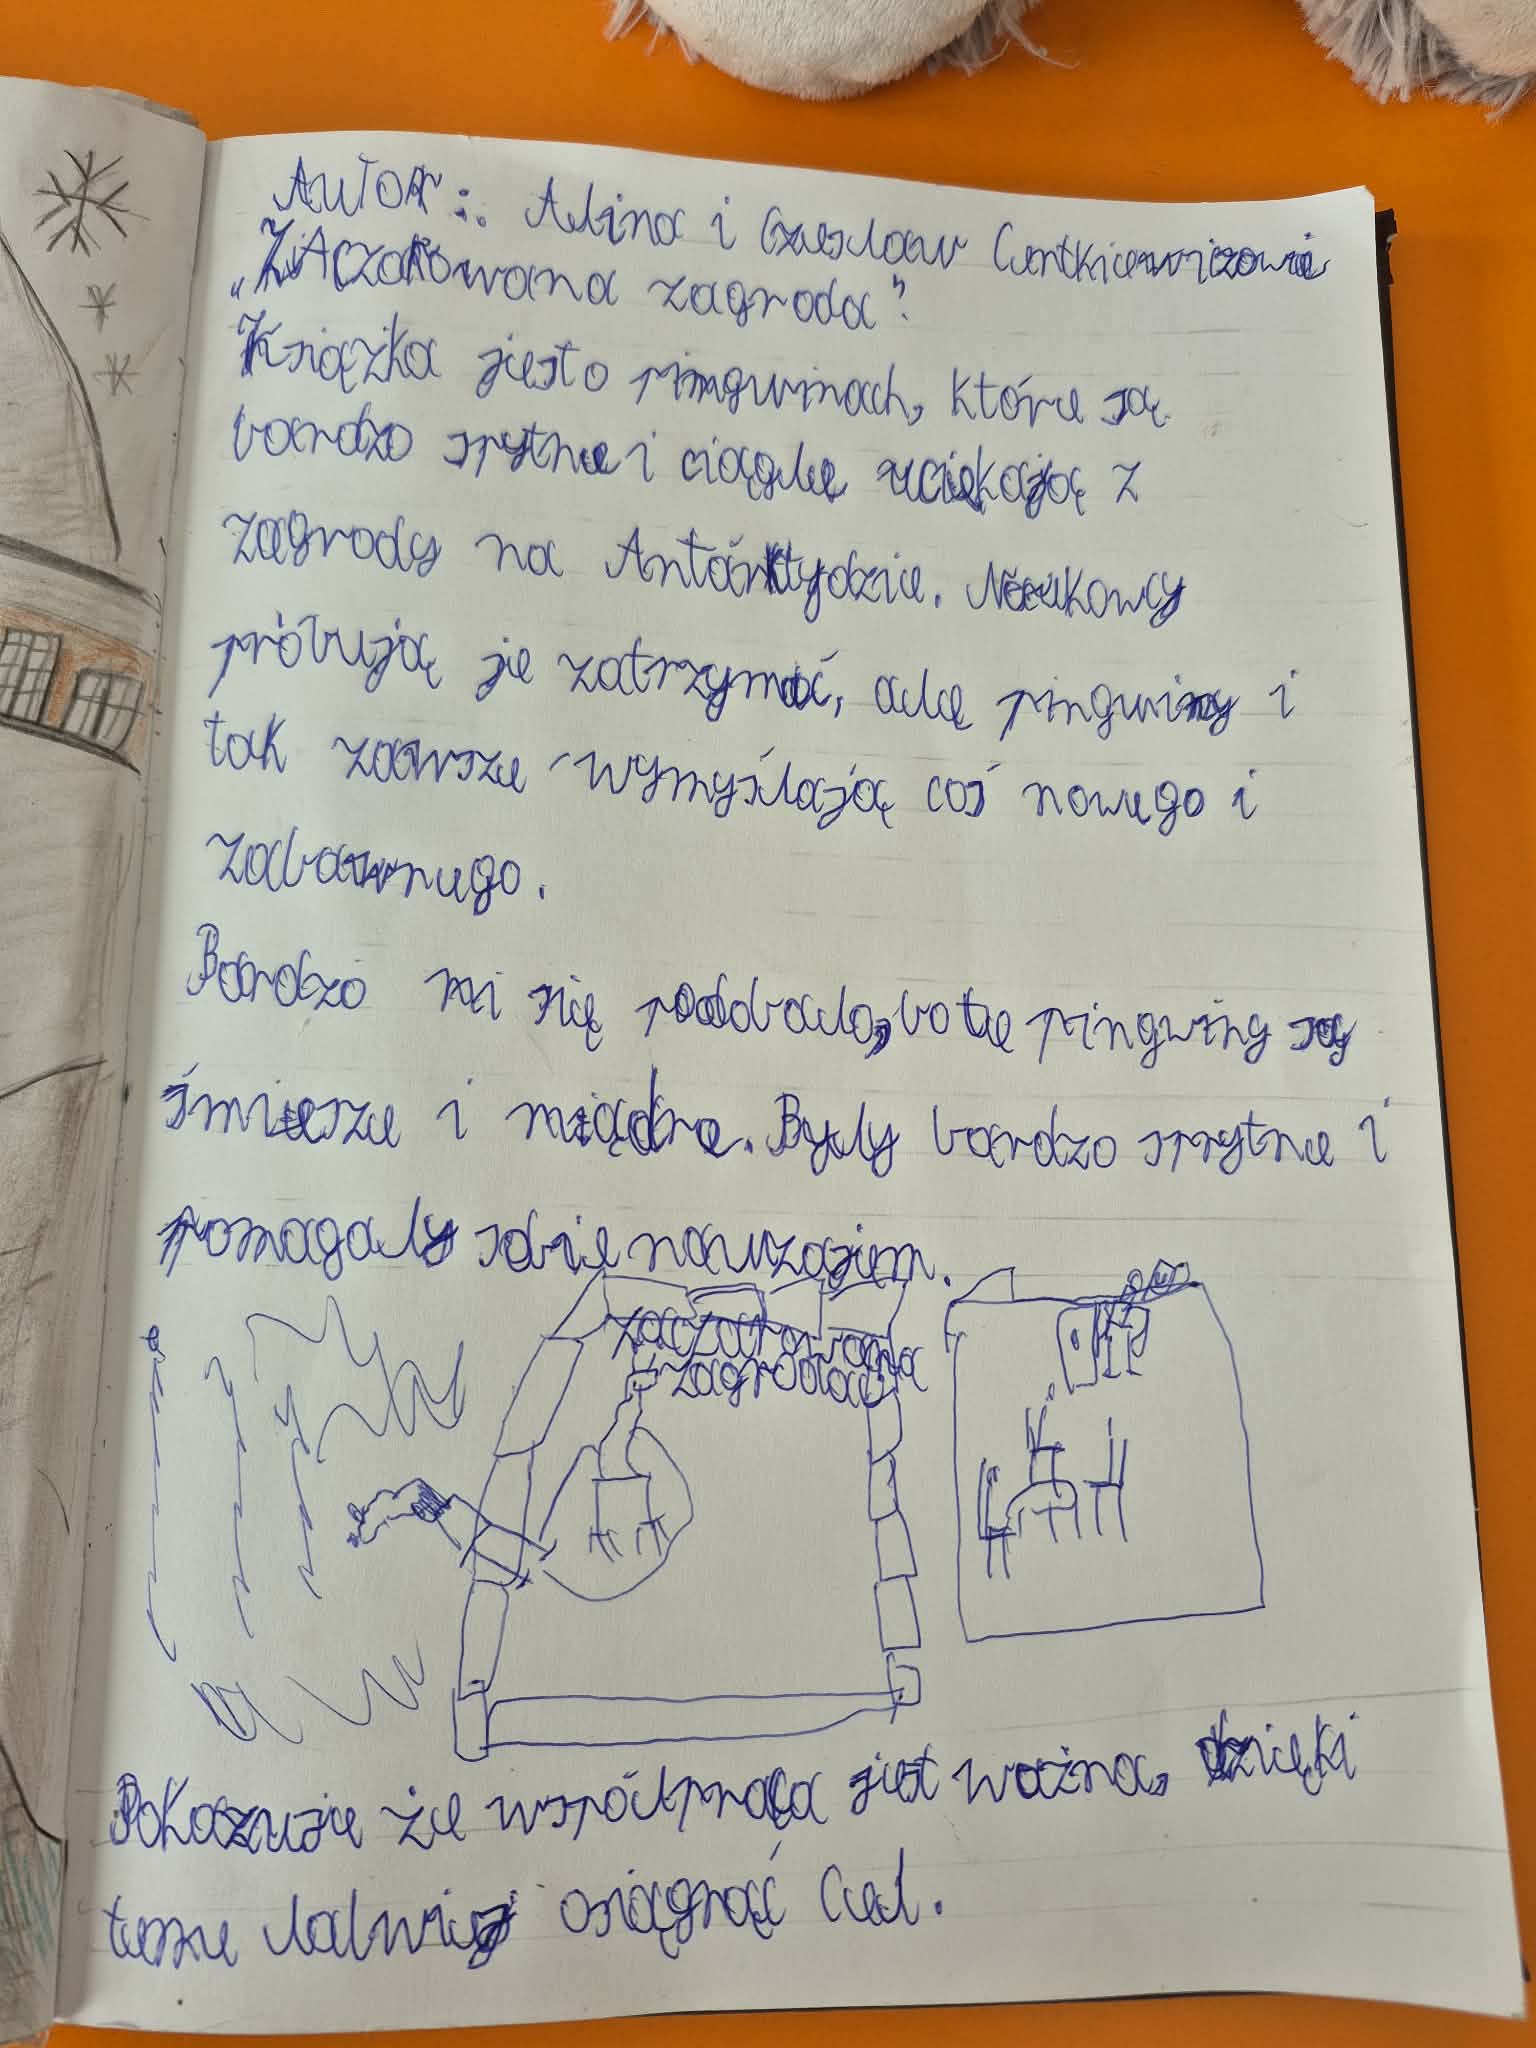 Autor: Alina i Czesław Centkiewiczowie
„Zaczarowana zagroda”
Książka jest o pingwinach, które są
bardzo sprytne i ciągle uciekają z
zagrody na Antarktydzie. Naukowcy
próbują je zatrzymać, ale pingwiny i
tak zawsze wymyślają coś nowego i
zabawnego.
Bardzo mi się podobało, bo te pingwiny są
śmieszne i mądre. Były bardzo sprytne i
pomagały sobie nawzajem.
zaczarowana
zagroda
Pokazuje że współpraca jest ważna, dzięki
temu łatwiej osiągnąć cel.